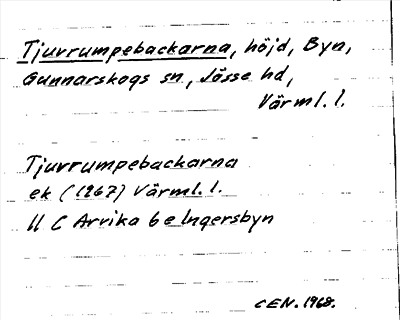 Tjuvrumpebackarna, höjd, Byn,
Gunnarskogs sn, Jösse hd,
Värml. l.
Tjuvrumpebackarna
ek (1967) Värml. l.
11 C Arvika 6 e Ingersbyn
CEN. 1968.